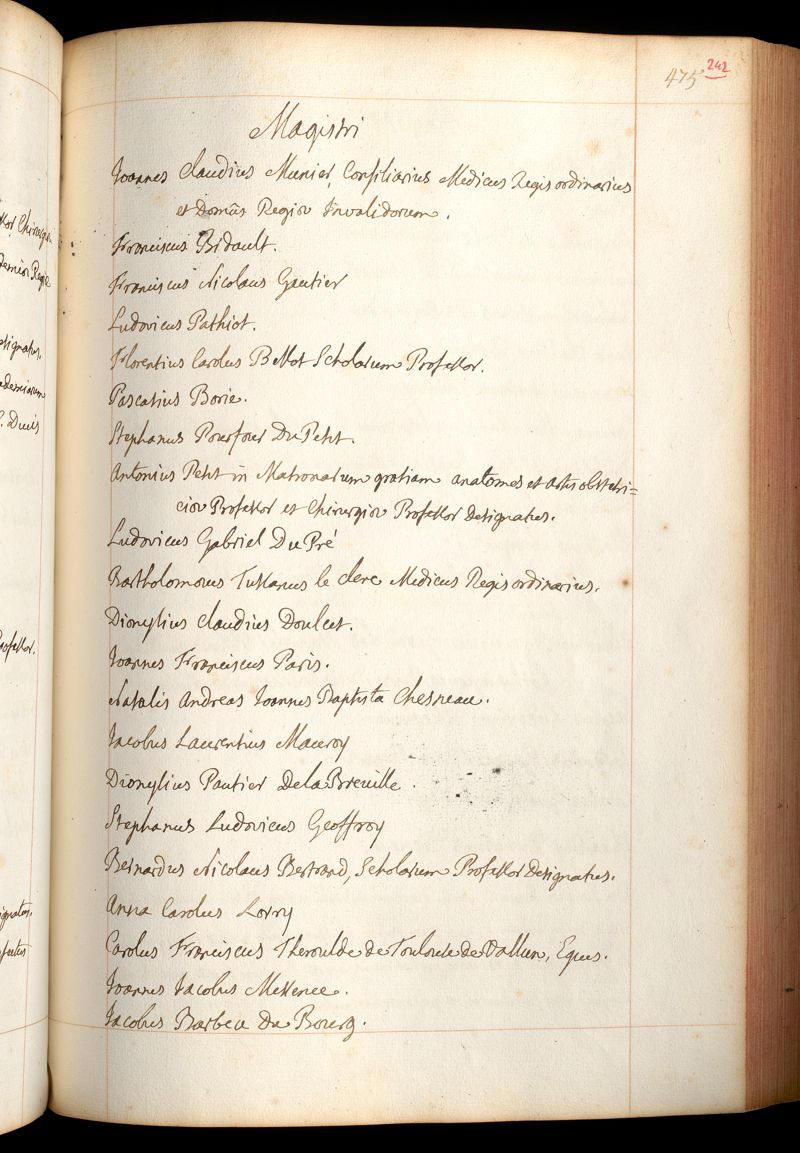 475 242
Magistri
Joannes Claudius Munier, Consiliarius Medicus Regis ordinarius
et Domûs Regiæ Invalidorum.
Franciscus Bidault.
Franciscus Nicolaus Gautier
Ludovicus Pathiot.
Florentius Carolus Bellot Scholarum Professor.
Pascatius Borie.
Stephanus Pourfour Du Petit.
Antonius Petit in Matronarum gratiam anatomes et artis obstetri=
ciæ Professor et Chirurgiæ Professor Designatus.
Ludovicus Gabriel Du Pré
Bartholomæus Tussanus le Clerc Medicus Regis ordinarius.
Dionysius Claudius Doulcet.
Joannes Franciscus Paris.
Natalis Andreas Joannes Baptista Chesneau.
Jacobus Laurentius Mauroy
Dionysius Pautier De la Breuille.
Stephanus Ludovicus Geoffroy
Bernardus Nicolaus Bertrand, Scholarum Professor Designatus.
Anna Carolus Lorry
Carolus Franciscus Theroulde de Vallun, Eques.
Joannes Jacobus Messence.
Jacobus Barbeu Du Bourg.